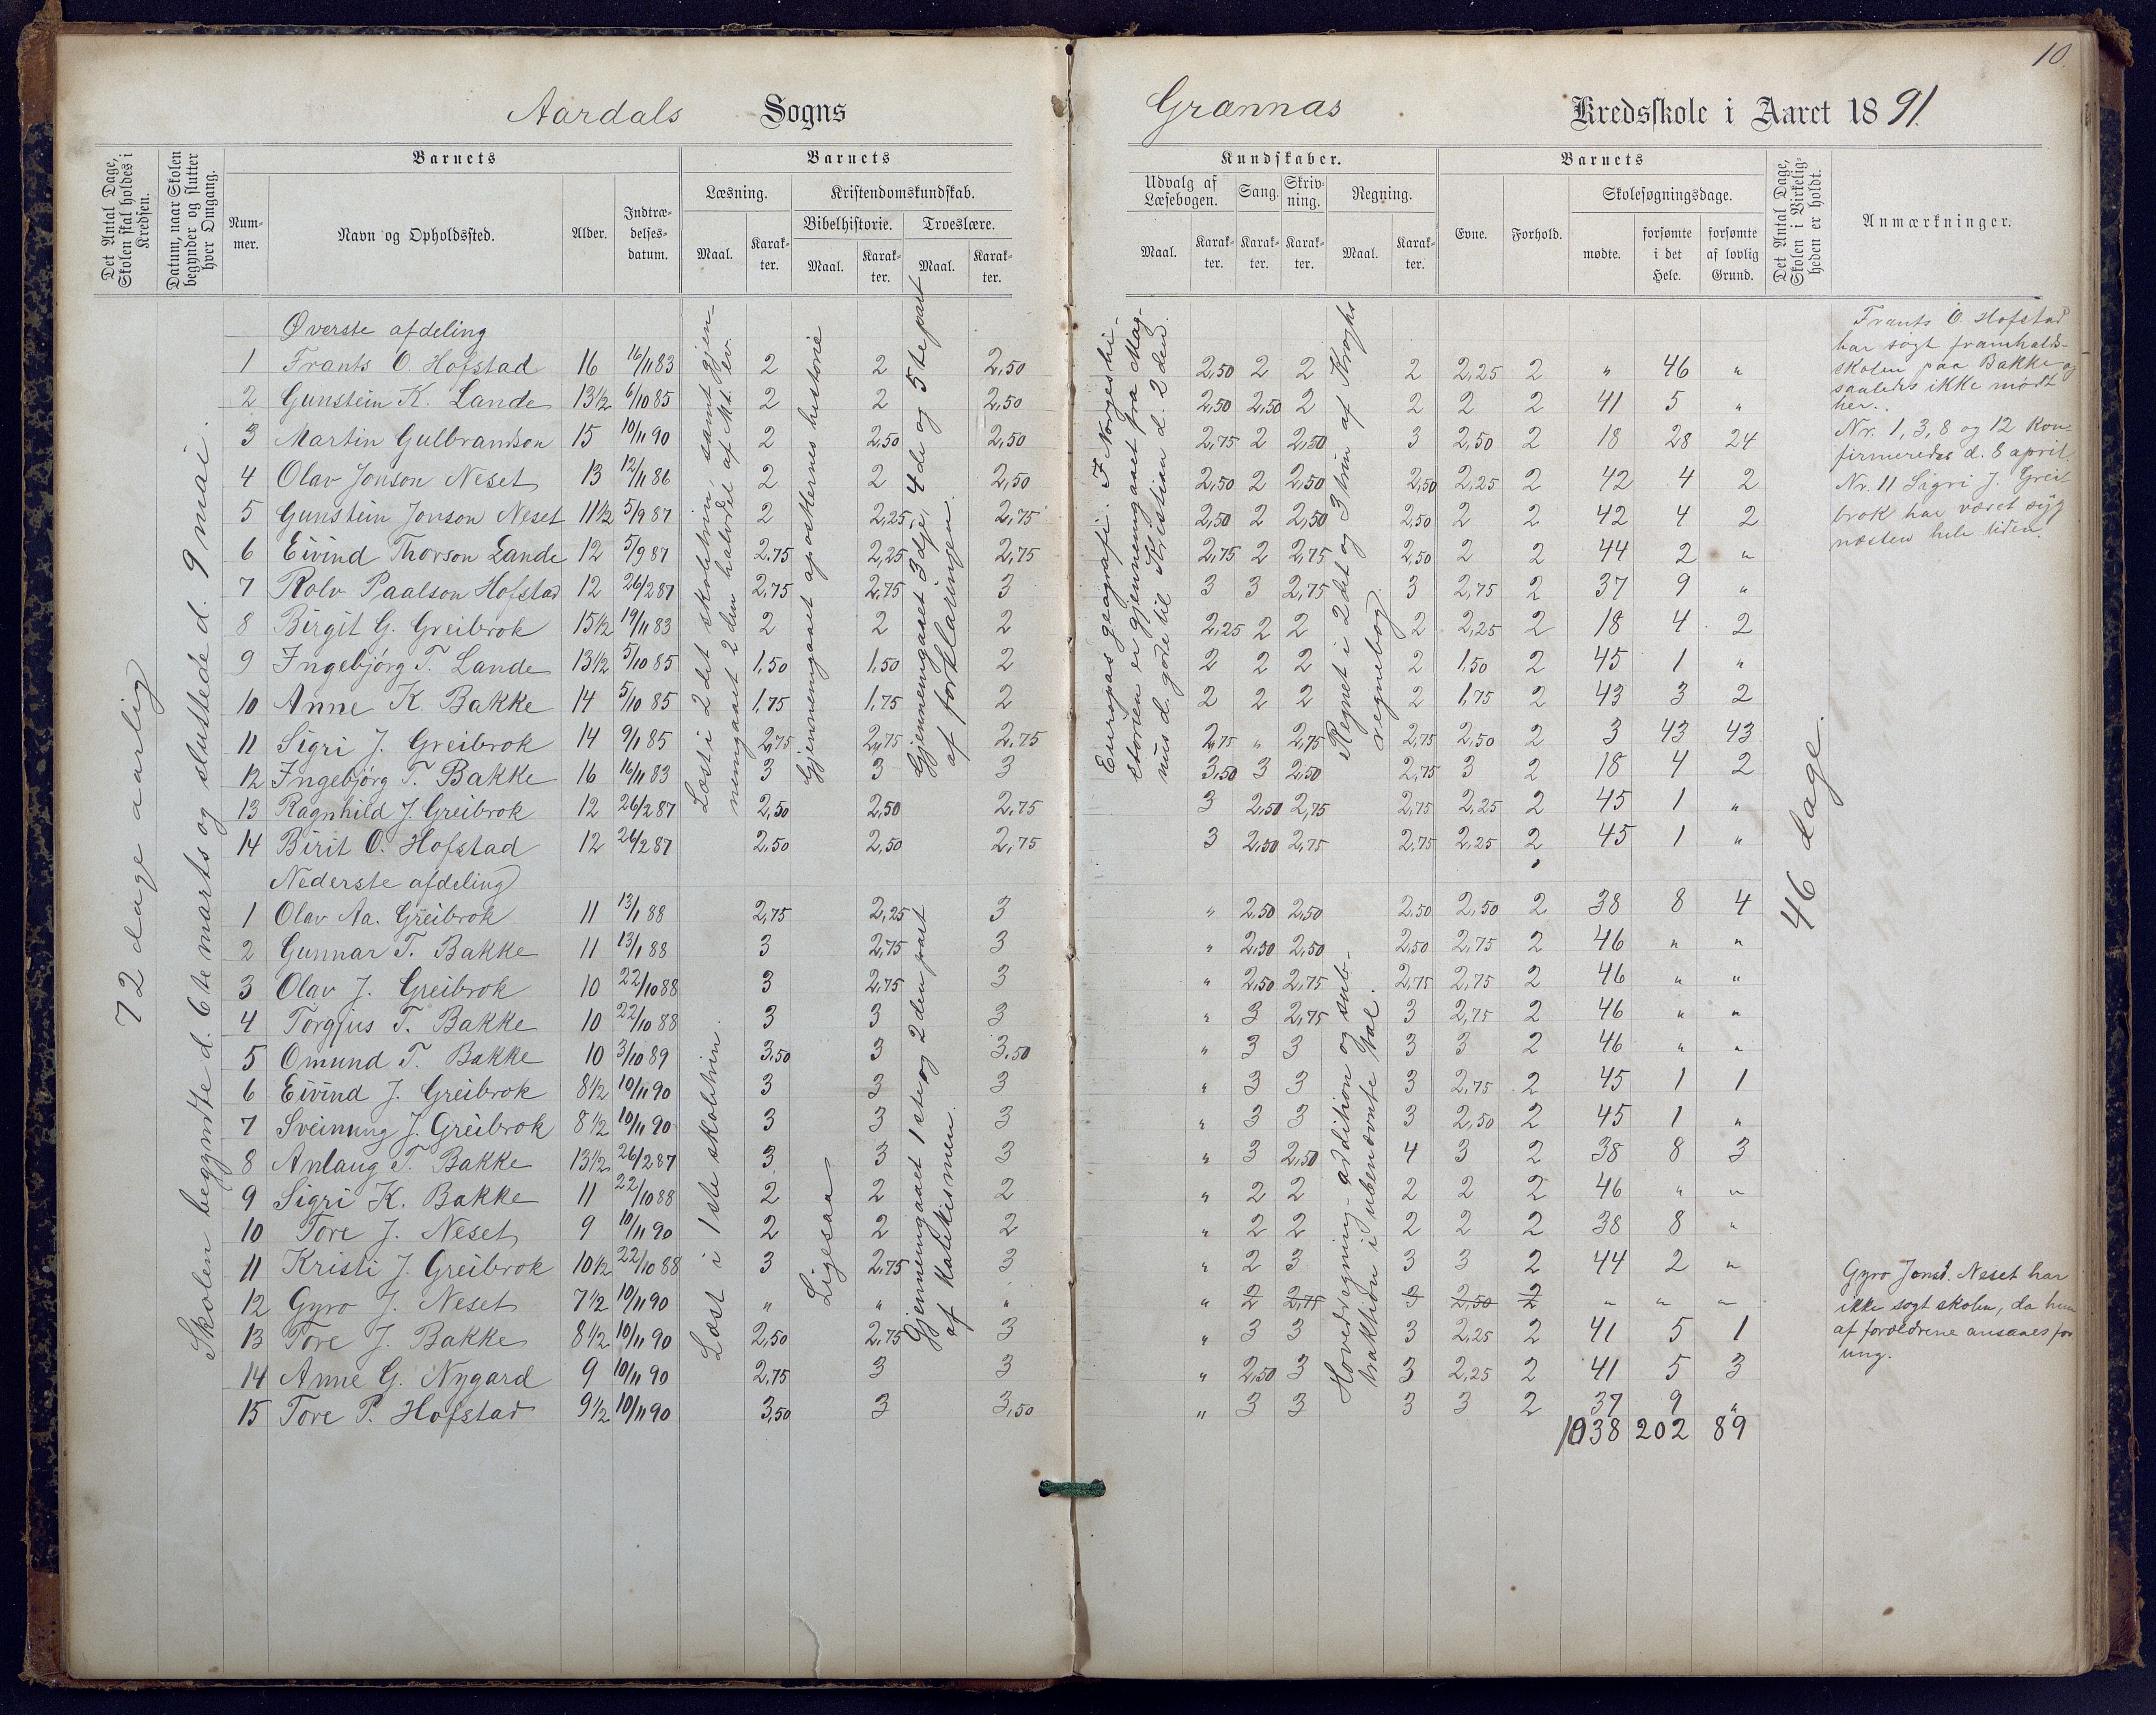 10.
Aardals Sogns
Grænnas Kredsskole i Aaret 1891.
Det Antal Dage, Skolen skal holdes i Kredsen.
Datum, naar Skolen begynder og slutter hver Omgang.
Barnets
Num-mer.
Navn og Opholdssted.
Alder.
Indtræ-delses-datum.
Barnets
Læsning.
Maal.
Karak-ter.
Kristendomskundskab.
Bibelhistorie.
Maal.
Karak-ter.
Troeslære.
Maal.
Karak-ter.
Kundskaber.
Udvalg af Læsebogen.
Maal.
Karak-ter.
Sang.
Karak-ter.
Skriv-ning.
Karak-ter.
Regning.
Maal.
Karak-ter.
Barnets
Evne.
Forhold.
Skolesøgningsdage.
mødte.
forsømte i det Hele.
forsømte af lovlig Grund.
Det Antal Dage, Skolen i Virkelig-heden er holdt.
Anmærkninger.
72 dage aarlig
Skolen begyndte d. 6te marts og sluttede d. 9 mai.
Øverste afdeling
1 Frants O. Hofstad 16 16/11 83 2 2 2,50 2,50 2 2 2 2,25 2 " 46 "
2 Gunstein K. Lande 13 1/2 6/10 85 2 2 2,50 2,50 2,50 2 2 2 2 41 5 "
3 Martin Gulbrandson 15 10/11 90 2 2,50 2,50 2,75 2 2,50 3 2,50 2 18 28 24
4 Olav Jonson Neset 13 12/11 86 2 2 2,50 2,50 2 2,50 2,50 2,25 2 42 4 2
5 Gunstein Jonson Neset 11 1/2 5/9 87 2 2,25 2,75 2,50 2 2,50 2,50 2 2 42 4 2
6 Eivind Thorson Lande 12 5/9 87 2,75 2,25 2,75 2,75 2 2,75 2,50 2 2 44 2 "
7 Rolv Paalson Hofstad 12 26/2 87 2,75 2,75 3 3 3 2,75 3 2,75 2 37 9 "
8 Birgit G. Greibrok 15 1/2 19/11 83 2 2 2 2,25 2 2 2 2,25 2 18 4 2
9 Ingebjørg T. Lande 13 1/2 5/10 85 1,50 1,50 2 2 2 2 2 1,50 2 45 1 "
10 Anne K. Bakke 14 5/10 85 1,75 1,75 2 2 2 2 2 1,75 2 43 3 2
11 Sigri J. Greibrok 14 9/1 85 2,75 2,75 2,75 2,75 " 2,75 2,75 2,50 2 3 43 43
12 Ingebjørg T. Bakke 16 16/11 83 3 3 3 3,50 3 2,50 2,75 3 2 18 4 2
13 Ragnhild J. Greibrok 12 26/2 87 2,50 2,50 2,75 3 2,50 2,75 2,75 2,25 2 45 1 "
14 Birit O. Hofstad 12 26/2 87 2,50 2,50 2,75 3 2,50 2,75 2,75 2,25 2 45 1 "
Nederste afdeling
1 Olav Aa. Greibrok 11 13/1 88 2,75 2,25 3 " 2,50 2,50 2,50 2,50 2 38 8 4
2 Gunnar T. Bakke 11 13/1 88 3 2,75 3 " 2,50 2,50 2,50 2,75 2 46 " "
3 Olav J. Greibrok 10 22/10 88 3 2,75 3 " 2,50 2,75 2,75 2,75 2 46 " "
4 Torgjus T. Bakke 10 22/10 88 3 3 3 " 3 2,75 3 2,75 2 46 " "
5 Omund T. Bakke 10 3/10 89 3,50 3 3,50 " 3 3 3 3 2 46 " "
6 Eivind J. Greibrok 8 1/2 10/11 90 3 3 3 " 3 3 3 2,75 2 45 1 1
7 Sveinung J. Greibrok 8 1/2 10/11 90 3 3 3 " 3 3 3 2,50 2 45 1 "
8 Anlaug T. Bakke 13 1/2 26/2 87 3 3 3 " 3 2,50 4 3 2 38 8 3
9 Sigri K. Bakke 11 22/10 88 2 2 2 " 2 2 2 2 2 46 " "
10 Tore J. Neset 9 10/11 90 2 2 2 " 2 2 2 2 2 38 8 "
11 Kristi J. Greibrok 10 1/2 22/10 88 3 2,75 3 " 2 3 3 3 2 44 2 "
12 Gyro J. Neset 7 1/2 10/11 90 " " " " 2 2,75 3 2,50 2 " " "
13 Tore J. Bakke 8 1/2 10/11 90 2,50 2,75 3 " 3 3 3 2,25 2 41 5 1
14 Anne G. Nygard 9 10/11 90 2,75 3 3 " 2,50 3 3 2,25 2 41 5 3
15 Tore P. Hofstad 9 1/2 10/11 90 3,50 3 3,50 " 3 3 3 3 2 37 9 "
1038 202 89
Læst i 2det skoletrin, samt gjen-
nemgaaet 2den halvdel af Mt. Ev.
Gjennemgaaet apostlernes historie
Gjennemgaaet 3dje, 4de og 5te part
af forklaringen.
Læst i 1ste skoletrin.
Ligesaa
Gjennemgaaet 1ste og 2den part
af katekismen.
Europas geografi. I Norges hi-
storien er gjennemgaaet fra Mag-
nus d. gode til Kristian d. 2den.
Regnet i 2det og 3 trin af Kroghs
regnebog.
Hovedregning - addition og sub-
traktion i ubenævnte tal.
46 dage.
Frants O. Hofstad
har søgt framhalds-
skolen paa Bakke og
saaledes ikke mødt
her.
Nr. 1, 3, 8 og 12 kon-
firmeredes d. 8 april.
Nr. 11 Sigri J. Grei-
brok har været syg
næsten hele tiden.
Gyro Jonsd. Neset har
ikke søgt skolen, da hun
af forældrene ansaaes for
ung.